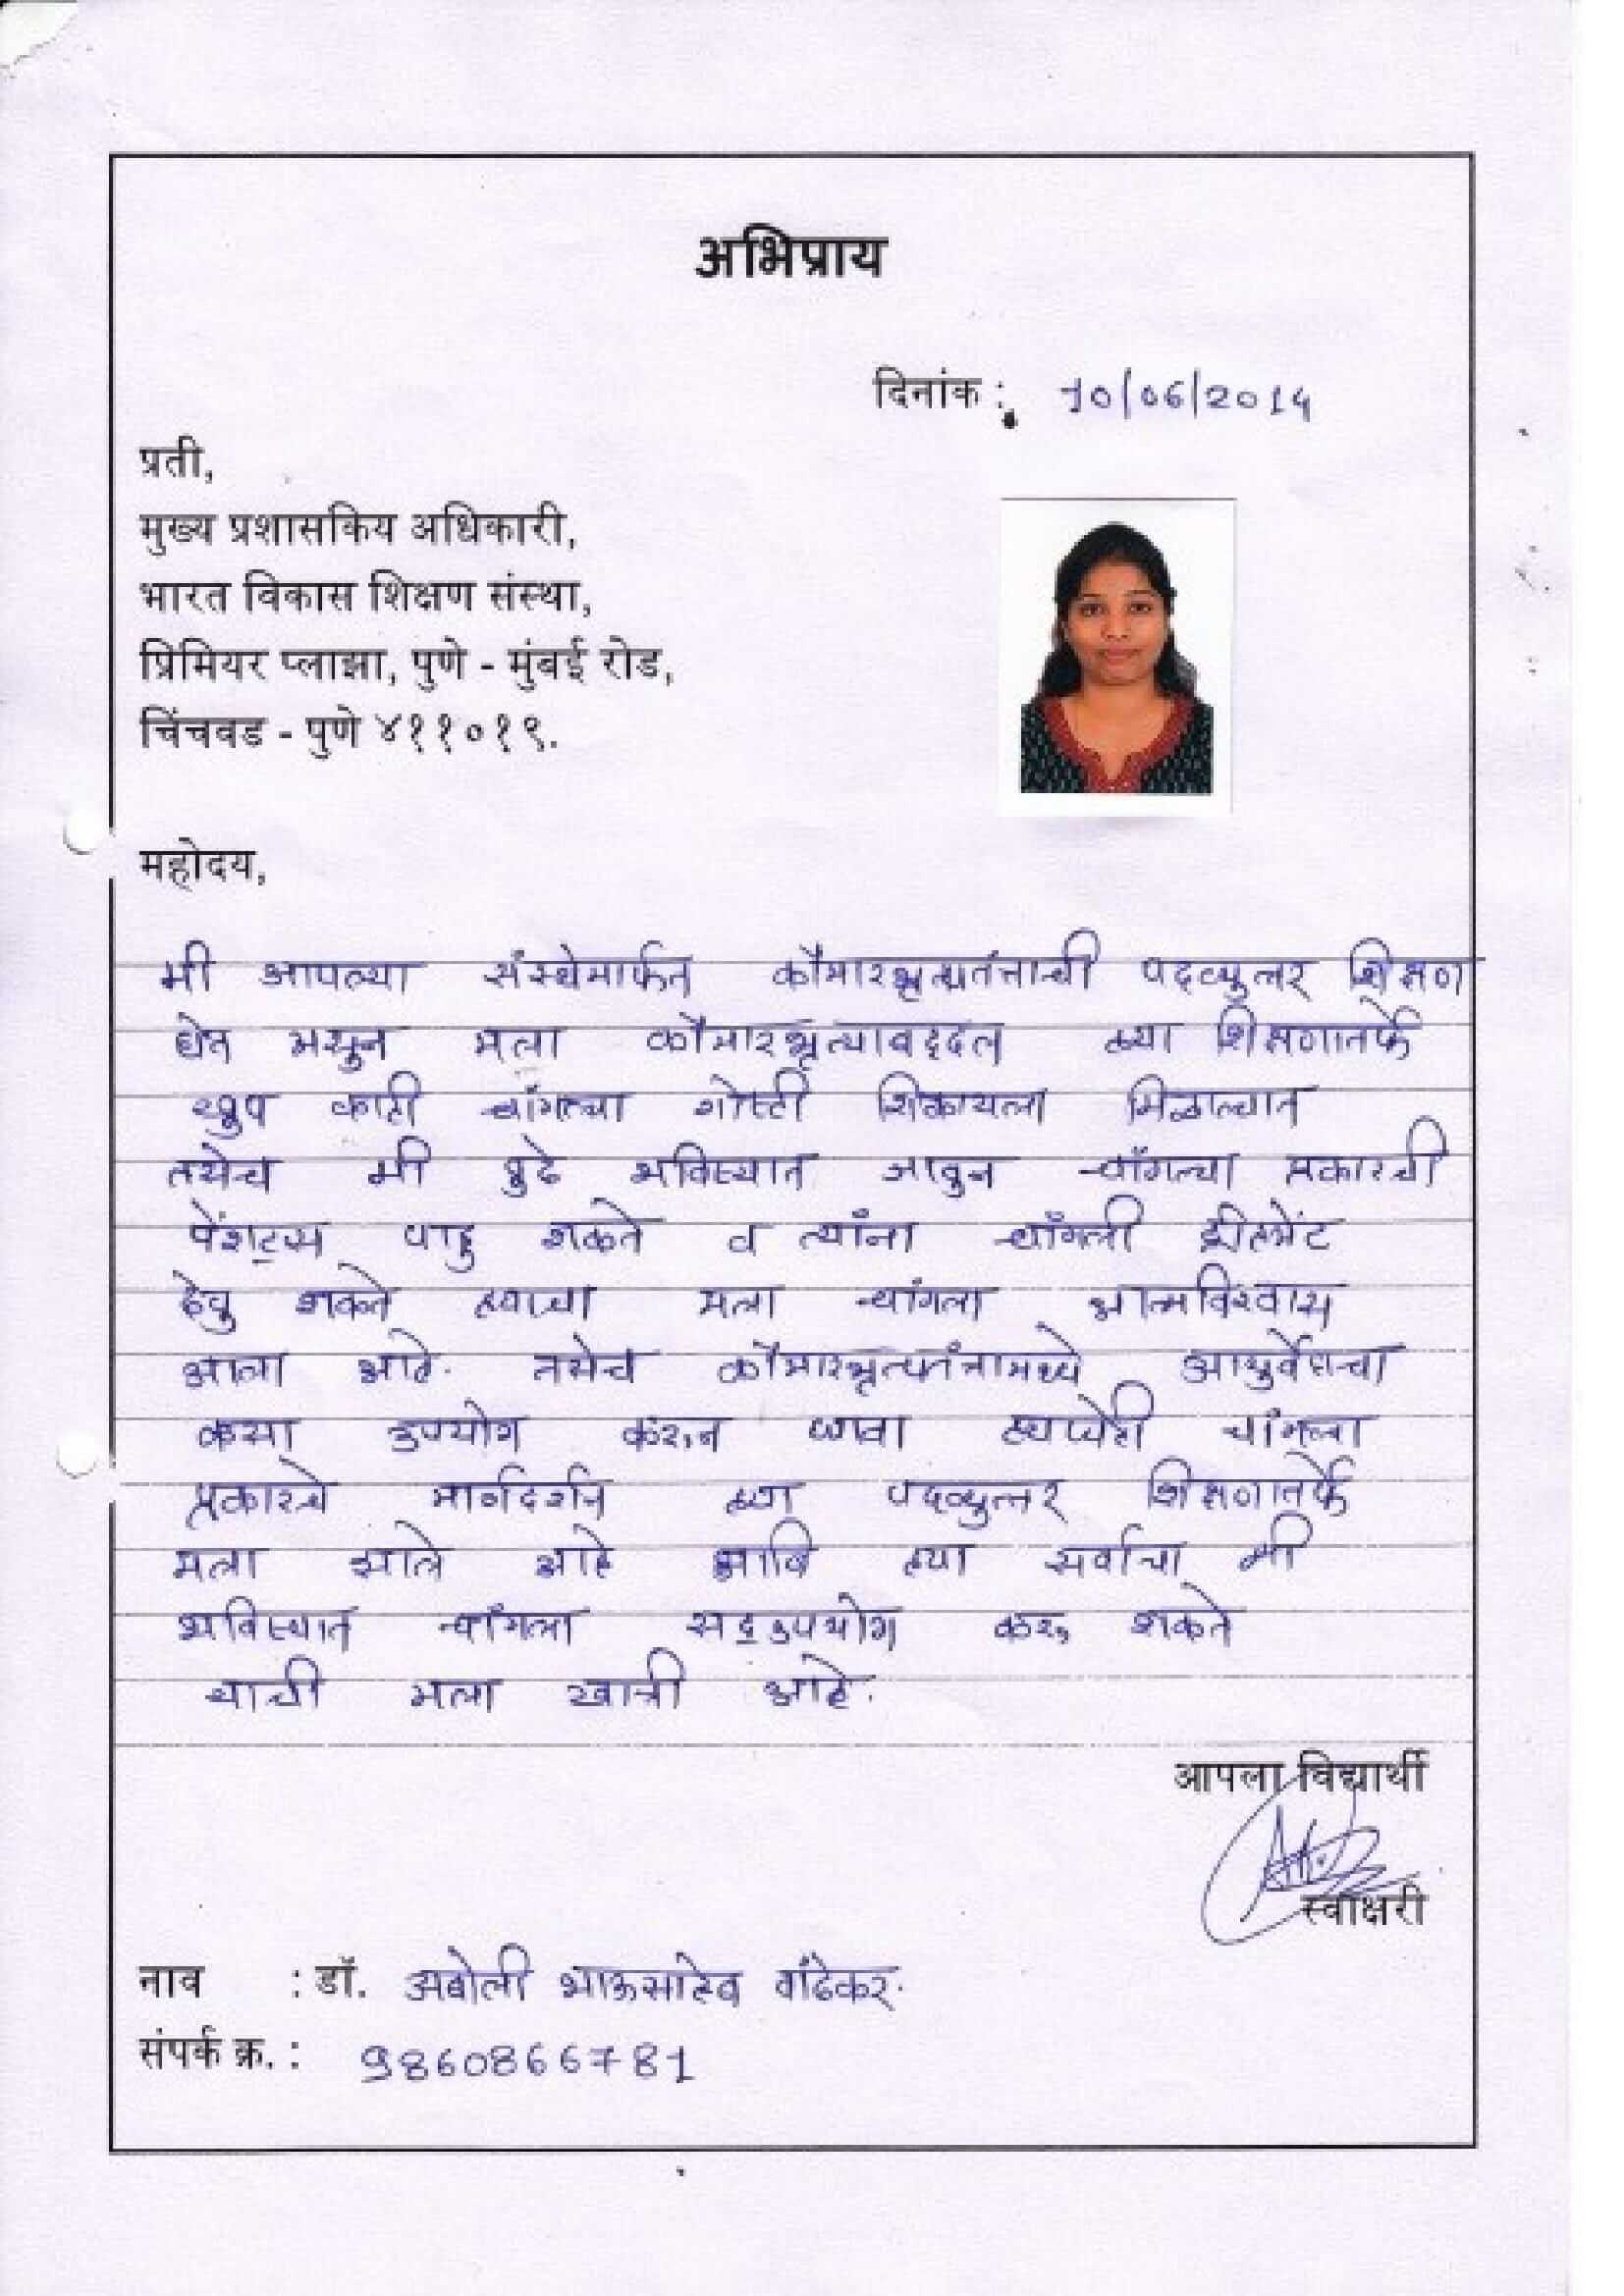 अभिप्राय
दिनांक : 10/06/2014
प्रती,
मुख्य प्रशासकिय अधिकारी,
भारत विकास शिक्षण संस्था,
प्रिमियर प्लाझा, पुणे - मुंबई रोड,
चिंचवड - पुणे ४११०१९.
महोदय,
मी आपल्या संस्थेमार्फत कौमारभृत्यतंत्राची पदव्युत्तर शिक्षण
घेत असुन मला कौमारभृत्याबद्दल ह्या शिक्षणातर्फे
खुप काही चांगल्या गोष्टी शिकायला मिळाल्यात
तसेच मी पुढे भविष्यात जावुन चांगल्या प्रकारची
पेंशंट्स पाहु शकते व त्यांना चांगली ट्रीटमेंट
देवु शकते ह्याचा मला चांगला आत्मविश्वास
आला आहे. तसेच कौमारभृत्यतंत्रामध्ये आयुर्वेदाचा
कसा उपयोग करुन घ्यावा ह्याचेही चांगल्या
प्रकारचे मार्गदर्शन ह्या पदव्युत्तर शिक्षणातर्फे
मला झाले आहे आणि ह्या सर्वाचा मी
भविष्यात चांगला सद्उपयोग करु शकते
याची मला खात्री आहे.
आपला विद्यार्थी
स्वाक्षरी
नाव : डॉ. अबोली भाऊसाहेब वांढेकर.
संपर्क क्र. : 9860866781